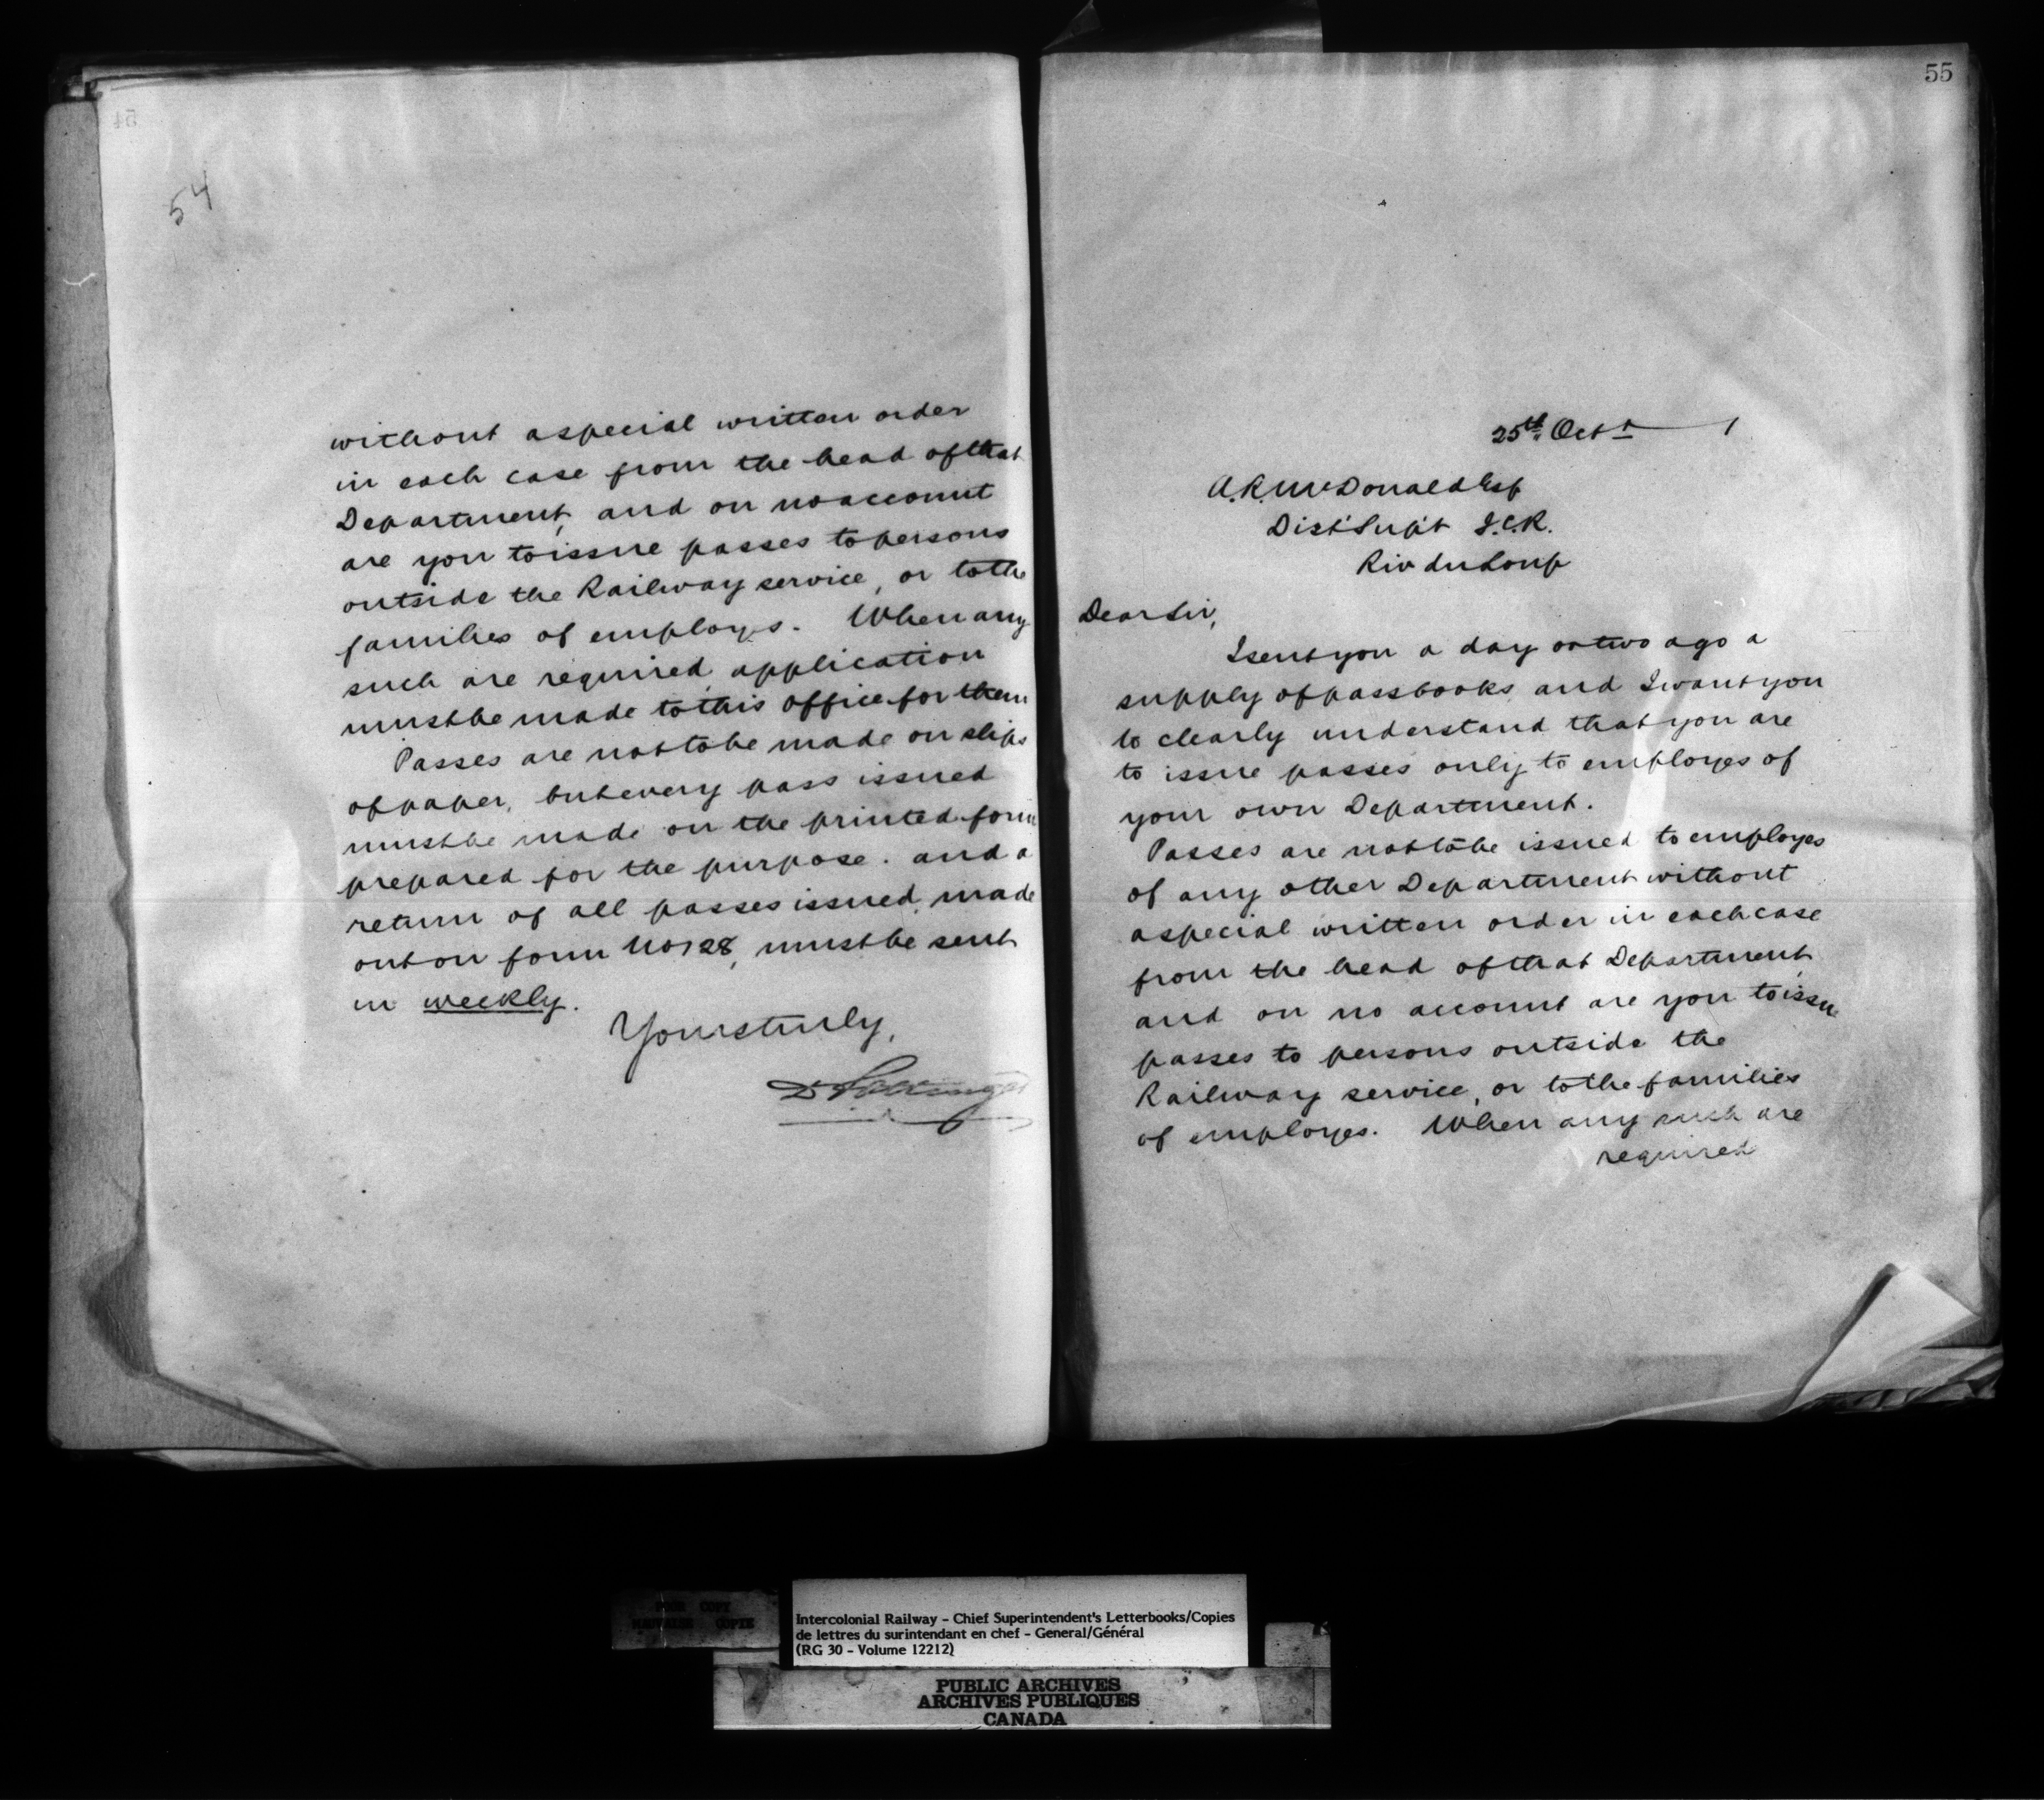 54
without a special written order
in each case from the head of that
Department, and on no account
are you to issue passes to persons
outside the Railway service, or to the
families of employes. When any
such are required, application
must be made to this office for them
Passes are not to be made on slips
of paper, but every pass issued
must be made on the printed form
prepared for the purpose. and a
return of all passes issued, made
out on form No 128, must be sent
in weekly.
Yours truly,
D Pottinger
55
25th Oct 1
A. R. McDonald Esq
Dist Supt I.C.R.
Riv du Loup
Dear Sir,
I sent you a day or two ago a
supply of pass books and I want you
to clearly understand that you are
to issue passes only to employes of
your own Department.
Passes are not to be issued to employes
of any other Department without
a special written order in each case
from the head of that Department,
and on no account are you to issue
passes to persons outside the
Railway service, or to the families
of employes. When any such are
required
POOR COPY
MAUVAISE COPIE
Intercolonial Railway - Chief Superintendent's Letterbooks/Copies
de lettres du surintendant en chef - General/Général
(RG 30 - Volume 12212)
PUBLIC ARCHIVES
ARCHIVES PUBLIQUES
CANADA